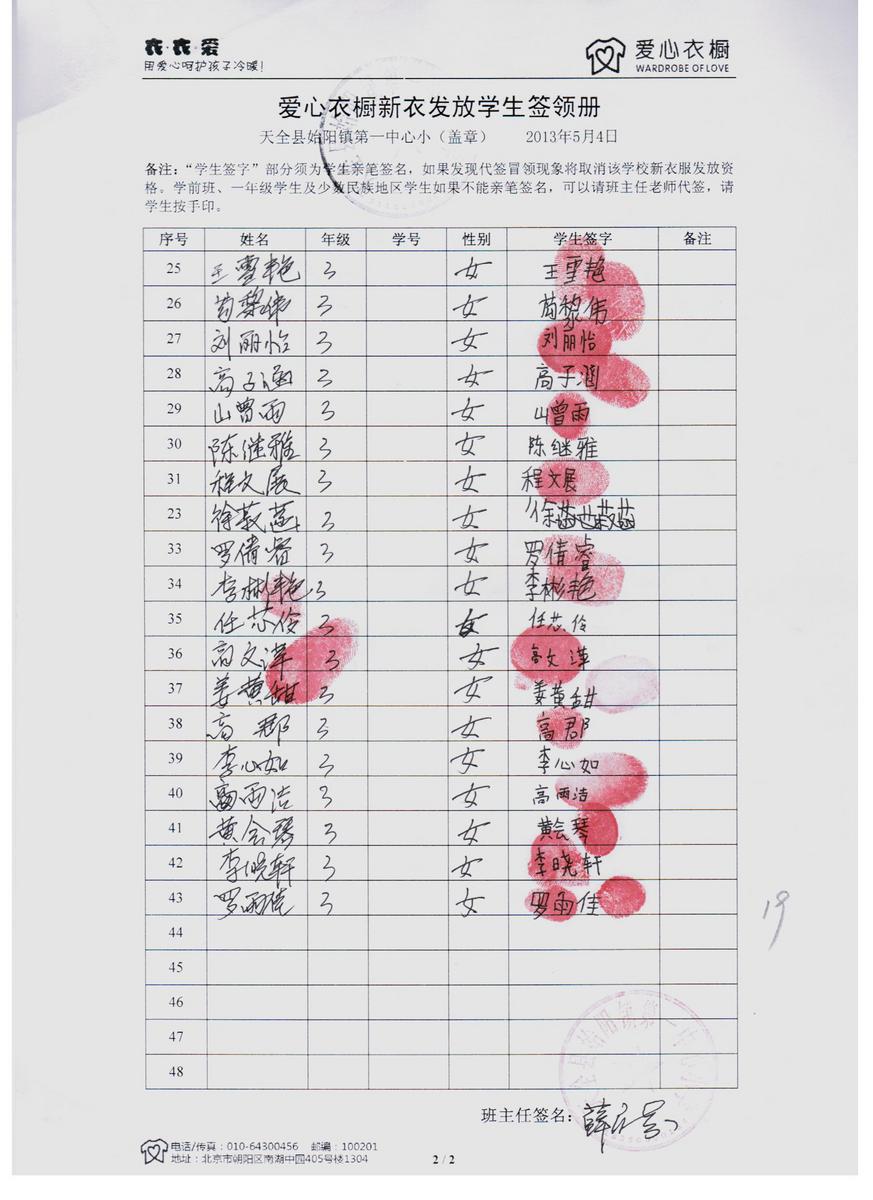 衣·衣·爱
用爱心呵护孩子冷暖!
爱心衣橱
WARDROBE OF LOVE
爱心衣橱新衣发放学生签领册
天全县始阳镇第一中心小（盖章） 2013年5月4日
备注：“学生签字”部分须为学生亲笔签名，如果发现代签冒领现象将取消该学校新衣服发放资
格。学前班、一年级学生及少数民族地区学生如果不能亲笔签名，可以请班主任老师代签，请
学生按手印。
序号 姓名 年级 学号 性别 学生签字 备注
25 王雪艳 3 女 王雪艳
26 苟黎伟 3 女 苟黎伟
27 刘丽怡 3 女 刘丽怡
28 高子涵 3 女 高子涵
29 山曾雨 3 女 山曾雨
30 陈继雅 3 女 陈继雅
31 程文展 3 女 程文展
23 徐 3 女 徐
33 罗倩睿 3 女 罗倩睿
34 李彬艳 3 女 李彬艳
35 任芯伶 3 女 任芯伶
36 高文 3 女 高文
37 姜黄甜 3 女 姜黄甜
38 高郡 3 女 高郡
39 李心如 3 女 李心如
40 雨洁 3 女 高雨洁
41 黄会琴 3 女 黄会琴
42 李晓轩 3 女 李晓轩
43 罗雨佳 3 女 罗雨佳
19
44
45
46
47
48
班主任签名：
电话/传真：010-64300456 邮编：100201
地址：北京市朝阳区南湖中园405号楼1304
2 / 2